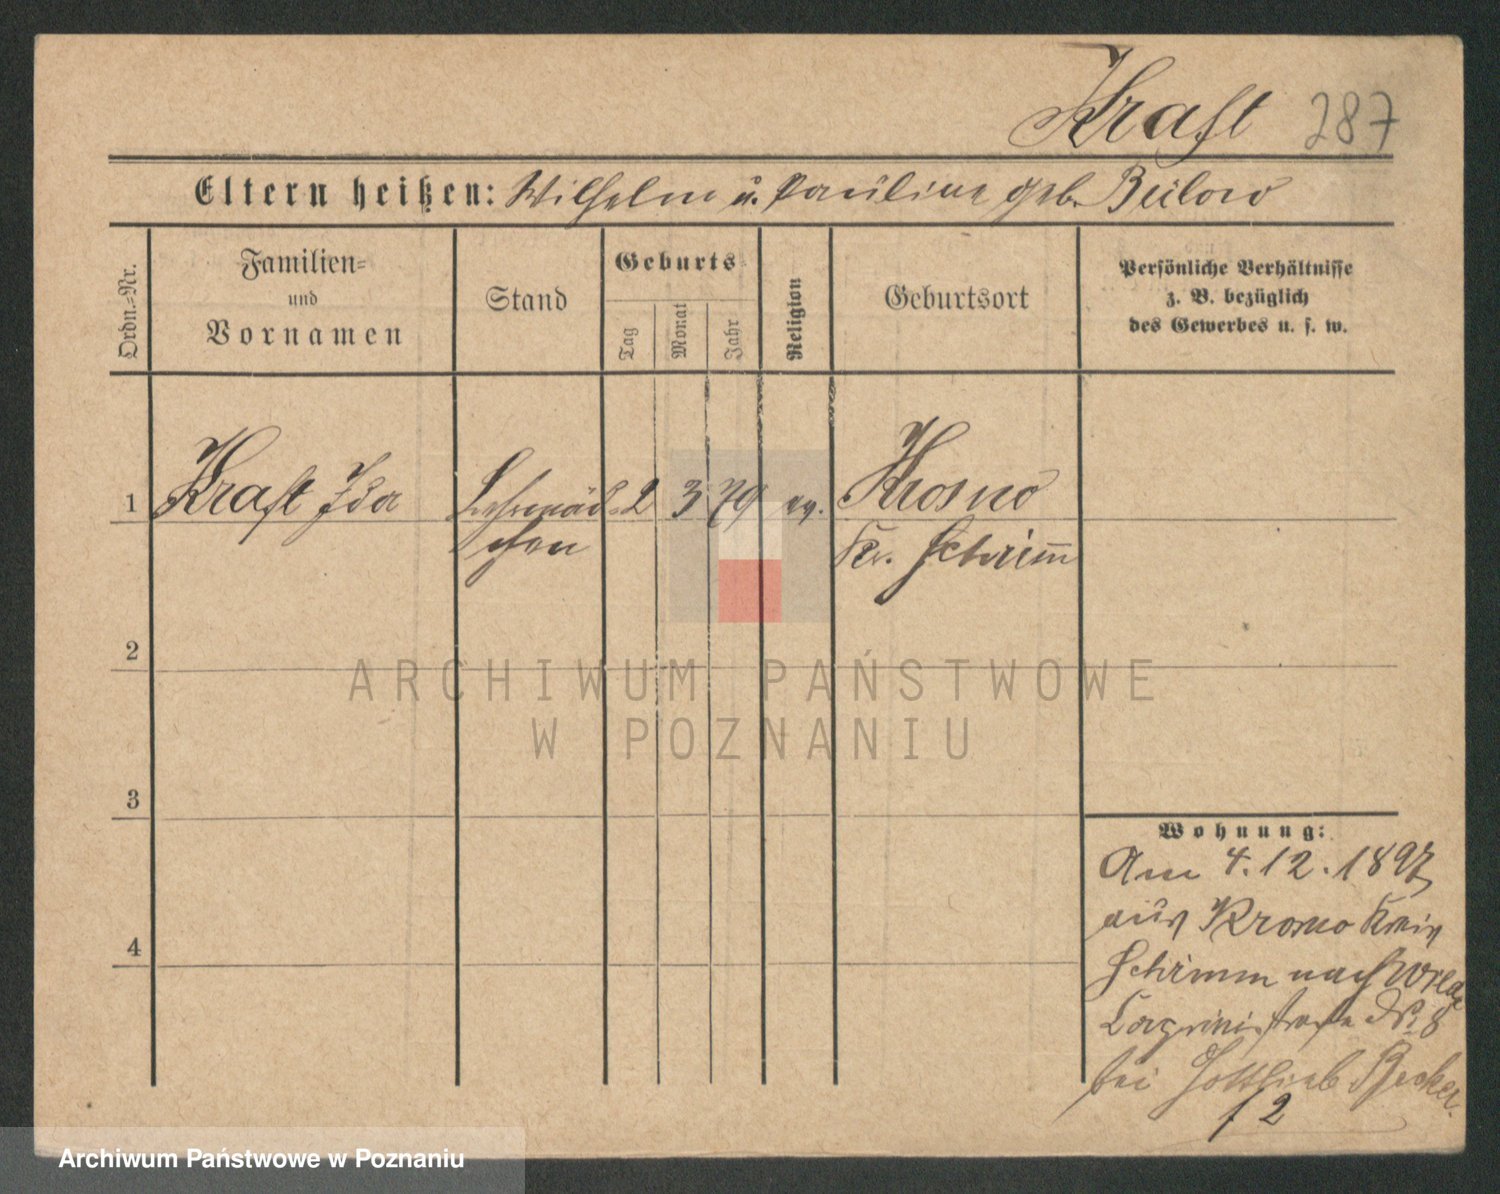 Kraft 287
Eltern heißen: Wilhelm u. Pauline geb. Beilow
Ordn.=Nr.
Familien=
und
Vornamen
Stand
Geburts=
Tag
Monat
Jahr
Religion
Geburtsort
Persönliche Verhältnisse
z. B. bezüglich
des Gewerbes u. s. w.
1 Kraft Ida Lehrmäd- 2 3 79 ev. Krosno
chen Kr. Schrim̅
2
3
4
Wohnung:
Am 4.12.1897
aus Krosno Kreis
Schrimm nach Wilda
No 8
bei Gottlieb Becker.
12
ARCHIWUM PAŃSTWOWE
W POZNANIU
Archiwum Państwowe w Poznaniu